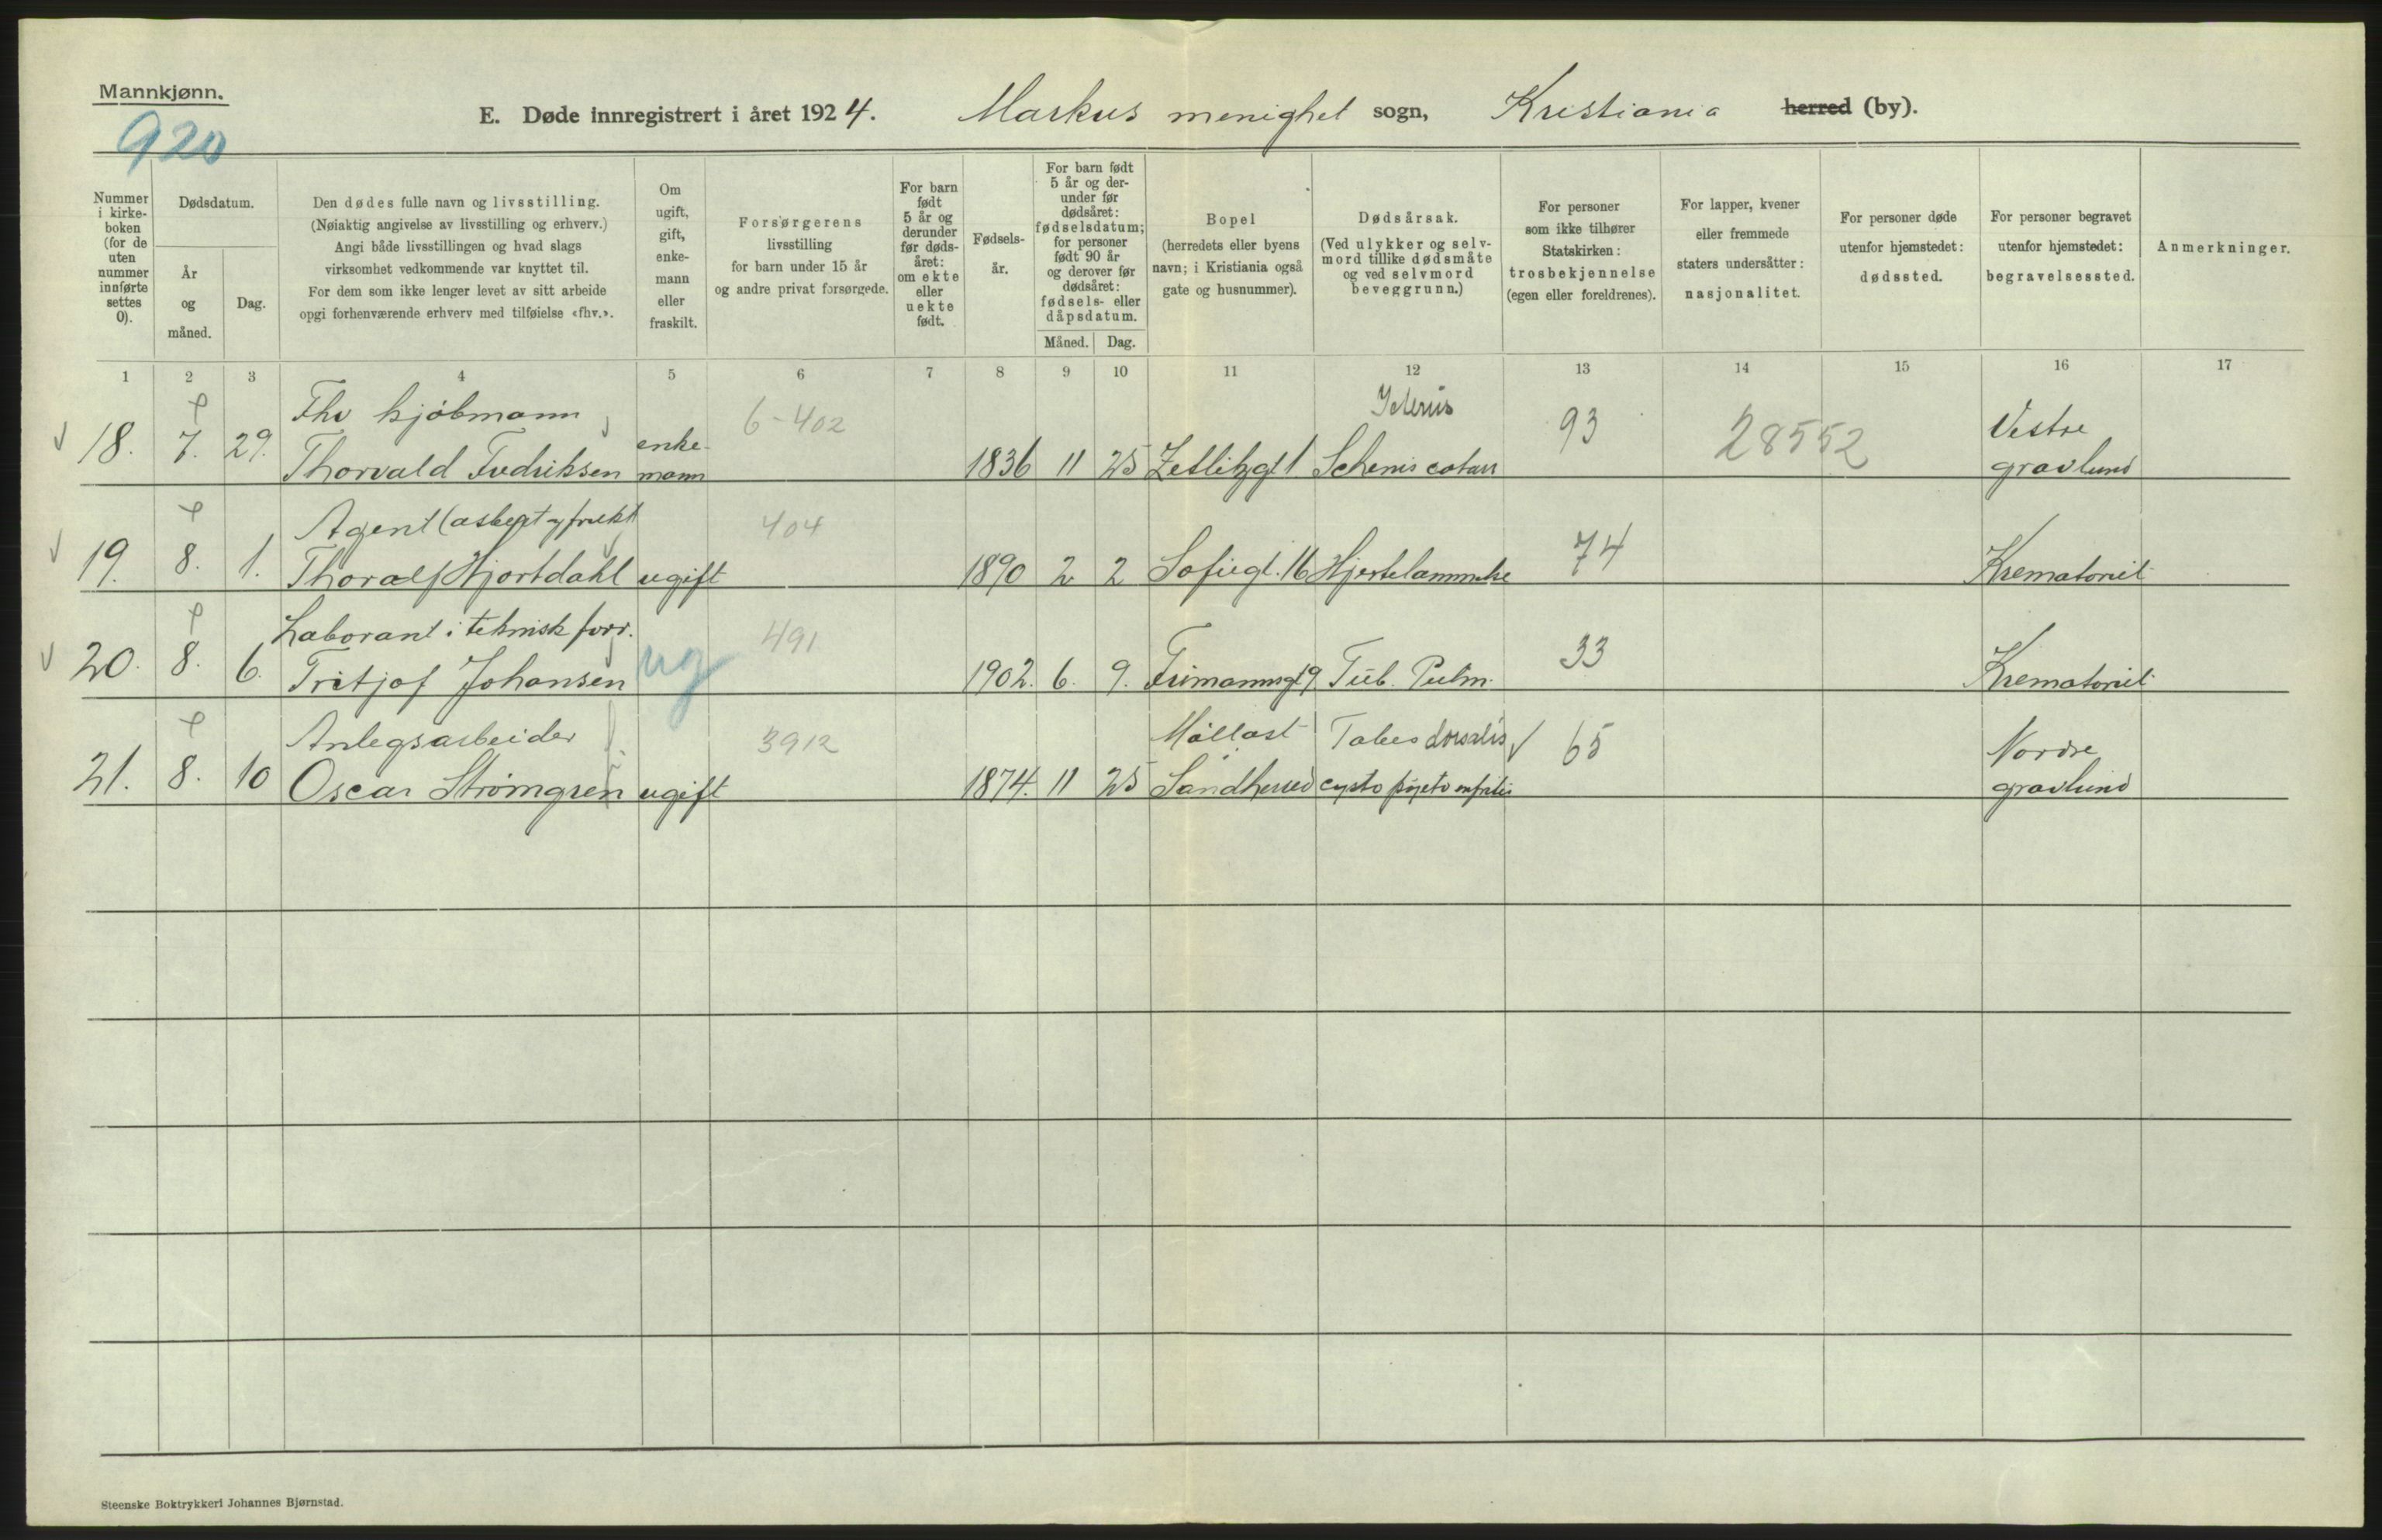 Mannkjønn.
920
E. Døde innregistrert i året 1924. Markus menighet sogn, Kristiania herred (by).
Nummer i kirke- boken (for de uten nummer innførte settes 0).
Dødsdatum.
År og måned.
Dag.
Den dødes fulle navn og livsstilling.
(Nøiaktig angivelse av livsstilling og erhverv.)
Angi både livsstillingen og hvad slags
virksomhet vedkommende var knyttet til.
For dem som ikke lenger levet av sitt arbeide
opgi forhenværende erhverv med tilføielse «fhv.».
Om ugift, gift, enke- mann eller fraskilt.
Forsørgerens
livsstilling
for barn under 15 år
og andre privat forsørgede.
For barn født 5 år og derunder før døds- året: om ekte eller uekte født.
Fødsels- år.
For barn født 5 år og der- under før dødsåret: fødselsdatum; for personer født 90 år og derover før dødsåret: fødsels- eller dåpsdatum.
Måned. Dag.
Bopel
(herredets eller byens
navn; i Kristiania også
gate og husnummer).
Dødsårsak.
(Ved ulykker og selv-
mord tillike dødsmåte
og ved selvmord
beveggrunn.)
For personer
som ikke tilhører
Statskirken:
trosbekjennelse
(egen eller foreldrenes).
For lapper, kvener
eller fremmede
staters undersåtter:
nasjonalitet.
For personer døde
utenfor hjemstedet:
dødssted.
For personer begravet
utenfor hjemstedet:
begravelsessted.
Anmerkninger.
1 2 3 4 5 6 7 8 9 10 11 12 13 14 15 16 17
Fhv kjøbmann 6-402 Icterus 93 28552 Vestre
18. 7. 29. Thorvald Fredriksen enke- mann 1836 11 25 Zetlitzgt 1 gravlund
Agent 404 74
19. 8. 1. Thoralf Hjortdahl ugift 1890 2 2 Sofiegt. 16 Hjertelammelse Krematoriet
Laborant i teknisk forr. 491 33
20. 8. 6. Fritjof Johansen ug 1902. 6. 9. Frimannsgt 9 Tub. Pulm. Krematoriet
Anlegsarbeider 3912 Tabes dorsalis 65 Nordre
21. 8. 10 Oscar Strömgren ugift 1874. 11 25 Sandherred gravlund
Steenske Boktrykkeri Johannes Bjørnstad.